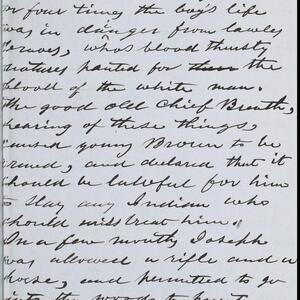 or four times the boy's life
was in danger from lawles
braves, who's blood thirsty
natures panted for the
blood of the white man.
The good old Chief Breath,
hearing of these things,
caused young Brown to be
armed, and declared that it
should be lawful for him
to slay any Indian who
should misstreat him.
In a few months Joseph
was allowed a rifle and a
horse, and permitted to go
into the woods to hunt